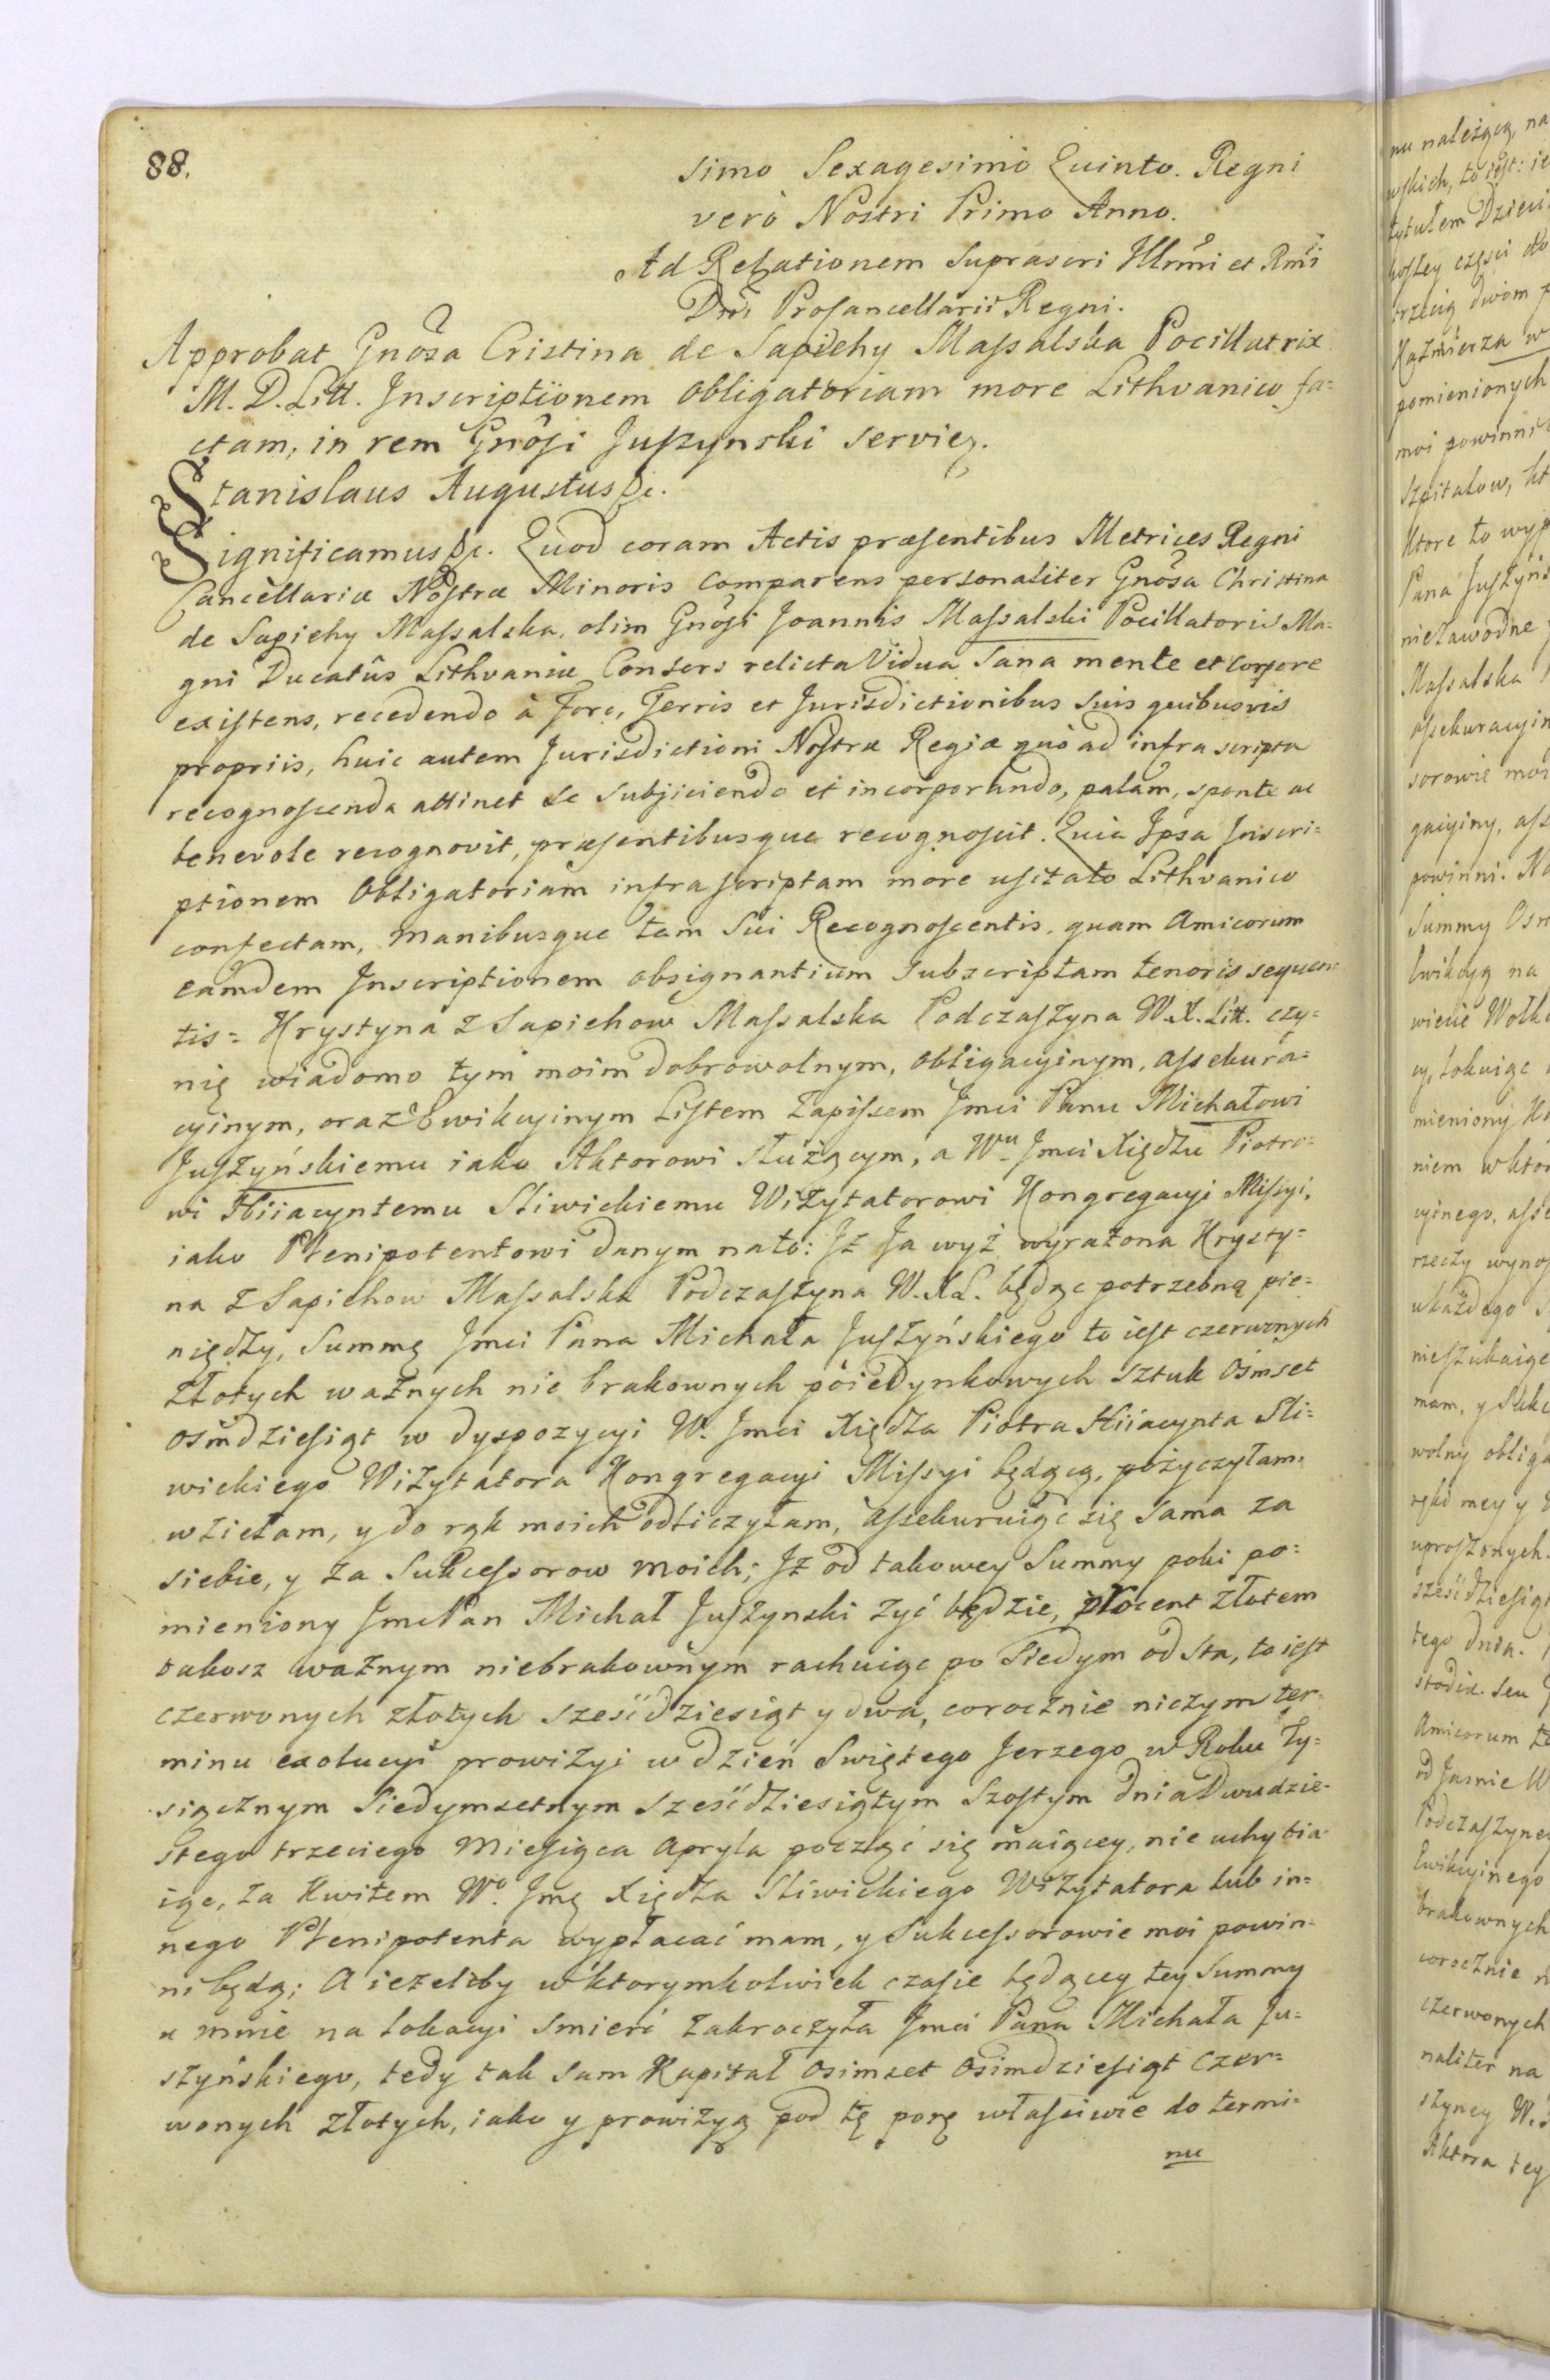 88.
simo Sexagesimo Quinto. Regni
verò Nostri Primo Anno.
Ad Relationem suprascri Illrmi et Rmi
Dni Procancellarii Regni.
Approbat Gnosa Cristina de Sapiehy Massalska Pocillatrix
M. D. Litt. Inscriptionem obligatoriam more Lithvanico fa=
ctam, in rem Gnosi Juszynski servien.
Stanislaus Augustus &c.
Significamus &c. Quod coram Actis præsentibus Metrices Regni
Cancellariæ Nostræ Minoris comparens personaliter Gnosa Christina
de Sapiehy Massalska, olim Gnosi Joannis Massalski Pocillatoris Ma=
gni Ducatûs Lithvaniæ Consors relicta Vidua sana mente et corpore
existens, recedendo à Foro, Terris et Jurisdictionibus suis quibusvis
propriis, huic autem Jurisdictioni Nostræ Regiæ quò ad infra scripta
recognoscenda attinet se subjiciendo et incorporando, palam, sponte ac
benevole recognovit, præsentibusque recognoscit. Quia Ipsa Inscri=
ptionem Obligatoriam infra scriptam more usitato Lithvanico
confectam, manibusque tam Sui Recognoscentis, quam Amicorum
eamdem Inscriptionem obsignantium subscriptam tenoris sequen=
tis = Krystyna z Sapiehow Massalska Podczaszyna W. X. Litt. czy=
nię wiadomo tym moim dobrowolnym, obligacyinym, assekura=
cyinym, oraz Ewikcyinym Listem Zapissem Jmci Panu Michałowi
Juszyńskiemu iako Aktorowi służącym, a Wu Jmci Xiędzu Piotro=
wi Hiiacyntemu Sliwickiemu Wizytatorowi Kongregacyi Missyi,
iako Plenipotentowi danym na to: Iż Ja wyż wyrażona Krysty=
na z Sapiehow Massalska Podczaszyna W. X L. będąc potrzebną pie=
niędzy, Summę Jmci Pana Michała Juszyńskiego to iest czerwonych
złotych ważnych nie brakownych poiedynkowych sztuk Ośmset
ośmdziesiąt w dyspozycyi W. Jmci Xiędza Piotra Hiiacynta Sli=
wickiego Wizytatora Kongregacyi Missyi będącą, pożyczyłam,
wzielam, y do rąk moich odliczyłam, assekuruiąc się sama za
siebie, y za Sukcessorow moich; Iż od takowey Summy poki po=
mieniony Jmc Pan Michał Juszynski żyć będzie, procent złotem
takosz ważnym niebrakownym rachuiąc po siedym od sta, to iest
czerwonych złotych sześćdziesiąt y dwa, corocznie niczym ter
minu exolucyi prowizyi w dzień Swiętego Jerzego w Roku Ty=
siącznym siedymsetnym sześćdziesiątym szostym dnia Dwudzie=
stego trzeciego Miesiąca Apryla począć się maiącey, nie uchybia=
iąc, za Kwitem Wo. Jmę Xiędza Sliwickiego Wizytatora lub in=
nego Plenipotenta wypłacać mam, y Sukcessorowie moi powin=
ni będą; A ieżeliby w ktorymkolwiek czasie będącey tey Summy
u mnie na lokacyi smierć zakroczyła Jmci Pana Michała Ju=
szyńskiego, tedy tak sam Kapitał Osimset Osimdziesiąt czer=
wonych złotych, iako y prowizyą pod tę porę właściwie do termi=
nu
nu należącą, na
wskich, to iest: ie
tytułem Dzieci
trzecią dwom
Kazmierza w
pomienionych
moi powinni
Szpitalow, kt
ktore to wyp
Pana Juszyńs
niezawodne
Massalska
assekuracyin
sorowie moi
gacyiny, ass
powinni. Na
Summy Osm
Ewikcyą na
wiecie Wołk
cy, lokuiąc
mieniony
niem w ktor
cyinego, asse
rzeczy wynos
ukażdego
nieszukaiąc
mam, y Sukc
wolny obliga
ręką mey y
uproszonych.
sześćdziesiąt
tego dnia.
Amicorum
od Jasnie W
Podczaszyney
Ewikcyinego
brakownych
corocznie n
czerwonych
naliter na
szyney W.
Aktora tey